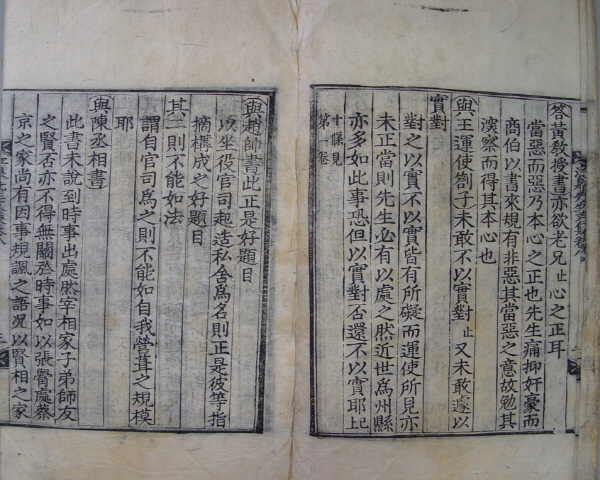 答黃敎授書亦欲老兄止心之正耳
當惡而惡乃本心之正也先生痛抑奸豪而
商伯以書來規有非惡其當惡之意故勉其
深察而得其本心也
與王運使劄子未敢不以實對止又未敢遽以
實對
對之以實不以實皆有所礙而運使所見亦
未正當則先生必有以處之然近世爲州縣
亦多如此事恐但以實對否還不以實耶上
十條見
第一卷
與趙帥書此正是好題目
以坐役官司起造私舍爲名則正是彼等指
摘構成之好題目
其二則不能如法
謂自官司爲之則不能如自我營葺之規模
耶
與陳丞相書
此書未說到時事出處然宰相家子弟師友
之賢否亦不得無關於時事如以張觷處蔡
京之家尚有因事規諷之語况以賢相之家